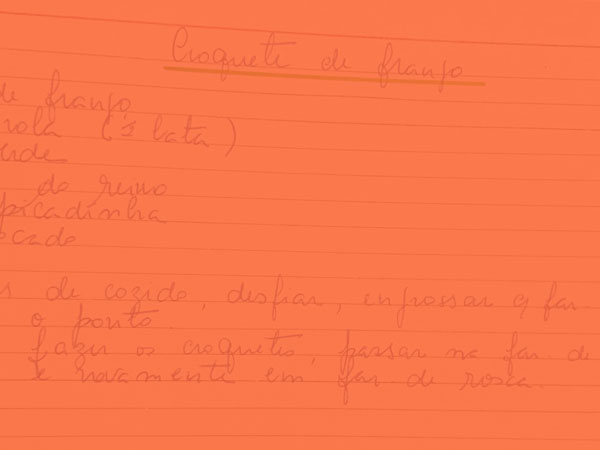 Croquete de frango
de frango
rola (1 lata)
erde
do reino
picadinha
ocado
s de cozido, desfiar, engrossar c/ far.
o ponto.
fazer os croquetes, passar na far. de
e novamente em far. de rosca.